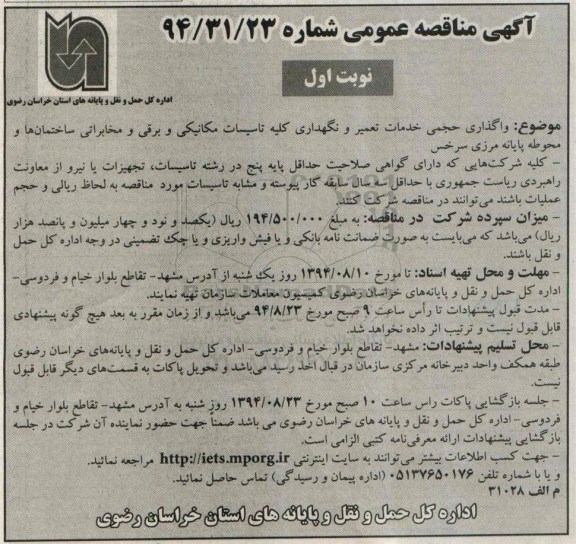 آگهی مناقصه عمومی شماره ۹۴/۳۱/۲۳
نوبت اول
اداره کل حمل و نقل و پایانه های استان خراسان رضوی
موضوع: واگذاری حجمی خدمات تعمیر و نگهداری کلیه تاسیسات مکانیکی و برقی و مخابراتی ساختمان‌ها و
محوطه پایانه مرزی سرخس
- کلیه شرکت‌هایی که دارای گواهی صلاحیت حداقل پایه پنج در رشته تاسیسات، تجهیزات یا نیرو از معاونت
راهبردی ریاست جمهوری با حداقل سه سال سابقه کار پیوسته و مشابه تاسیسات مورد مناقصه به لحاظ ریالی و حجم
عملیات باشند می‌توانند در مناقصه شرکت کنند.
- میزان سپرده شرکت در مناقصه: به مبلغ ۱۹۴/۵۰۰/۰۰۰ ریال (یکصد و نود و چهار میلیون و پانصد هزار
ریال) می‌باشد که می‌بایست به صورت ضمانت نامه بانکی و یا فیش واریزی و یا چک تضمینی در وجه اداره کل حمل
و نقل باشند.
- مهلت و محل تهیه اسناد: تا مورخ ۱۳۹۴/۰۸/۱۰ روز یک شنبه از آدرس مشهد- تقاطع بلوار خیام و فردوسی-
اداره کل حمل و نقل و پایانه‌های خراسان رضوی کمیسیون معاملات سازمان تهیه نمایند.
- مدت قبول پیشنهادات تا رأس ساعت ۹ صبح مورخ ۹۴/۸/۲۳ می‌باشد و از زمان مقرر به بعد هیچ گونه پیشنهادی
قابل قبول نیست و ترتیب اثر داده نخواهد شد.
- محل تسلیم پیشنهادات: مشهد- تقاطع بلوار خیام و فردوسی- اداره کل حمل و نقل و پایانه‌های خراسان رضوی
طبقه همکف واحد دبیرخانه مرکزی سازمان در قبال اخذ رسید می‌باشد و تحویل پاکات به قسمت‌های دیگر قابل قبول
نیست.
- جلسه بازگشایی پاکات راس ساعت ۱۰ صبح مورخ ۱۳۹۴/۰۸/۲۳ روز شنبه به آدرس مشهد- تقاطع بلوار خیام و
فردوسی- اداره کل حمل و نقل و پایانه های خراسان رضوی می باشد ضمناً جهت حضور نماینده آن شرکت در جلسه
بازگشایی پیشنهادات ارائه معرفی‌نامه کتبی الزامی است.
- جهت کسب اطلاعات بیشتر می‌توانند به سایت اینترنتی http://iets.mporg.ir مراجعه نمائید.
و یا با شماره تلفن ۰۵۱۳۷۶۵۰۱۷۶ (اداره پیمان و رسیدگی) تماس حاصل نمائید.
م الف ۳۱۰۲۸
اداره کل حمل و نقل و پایانه های استان خراسان رضوی